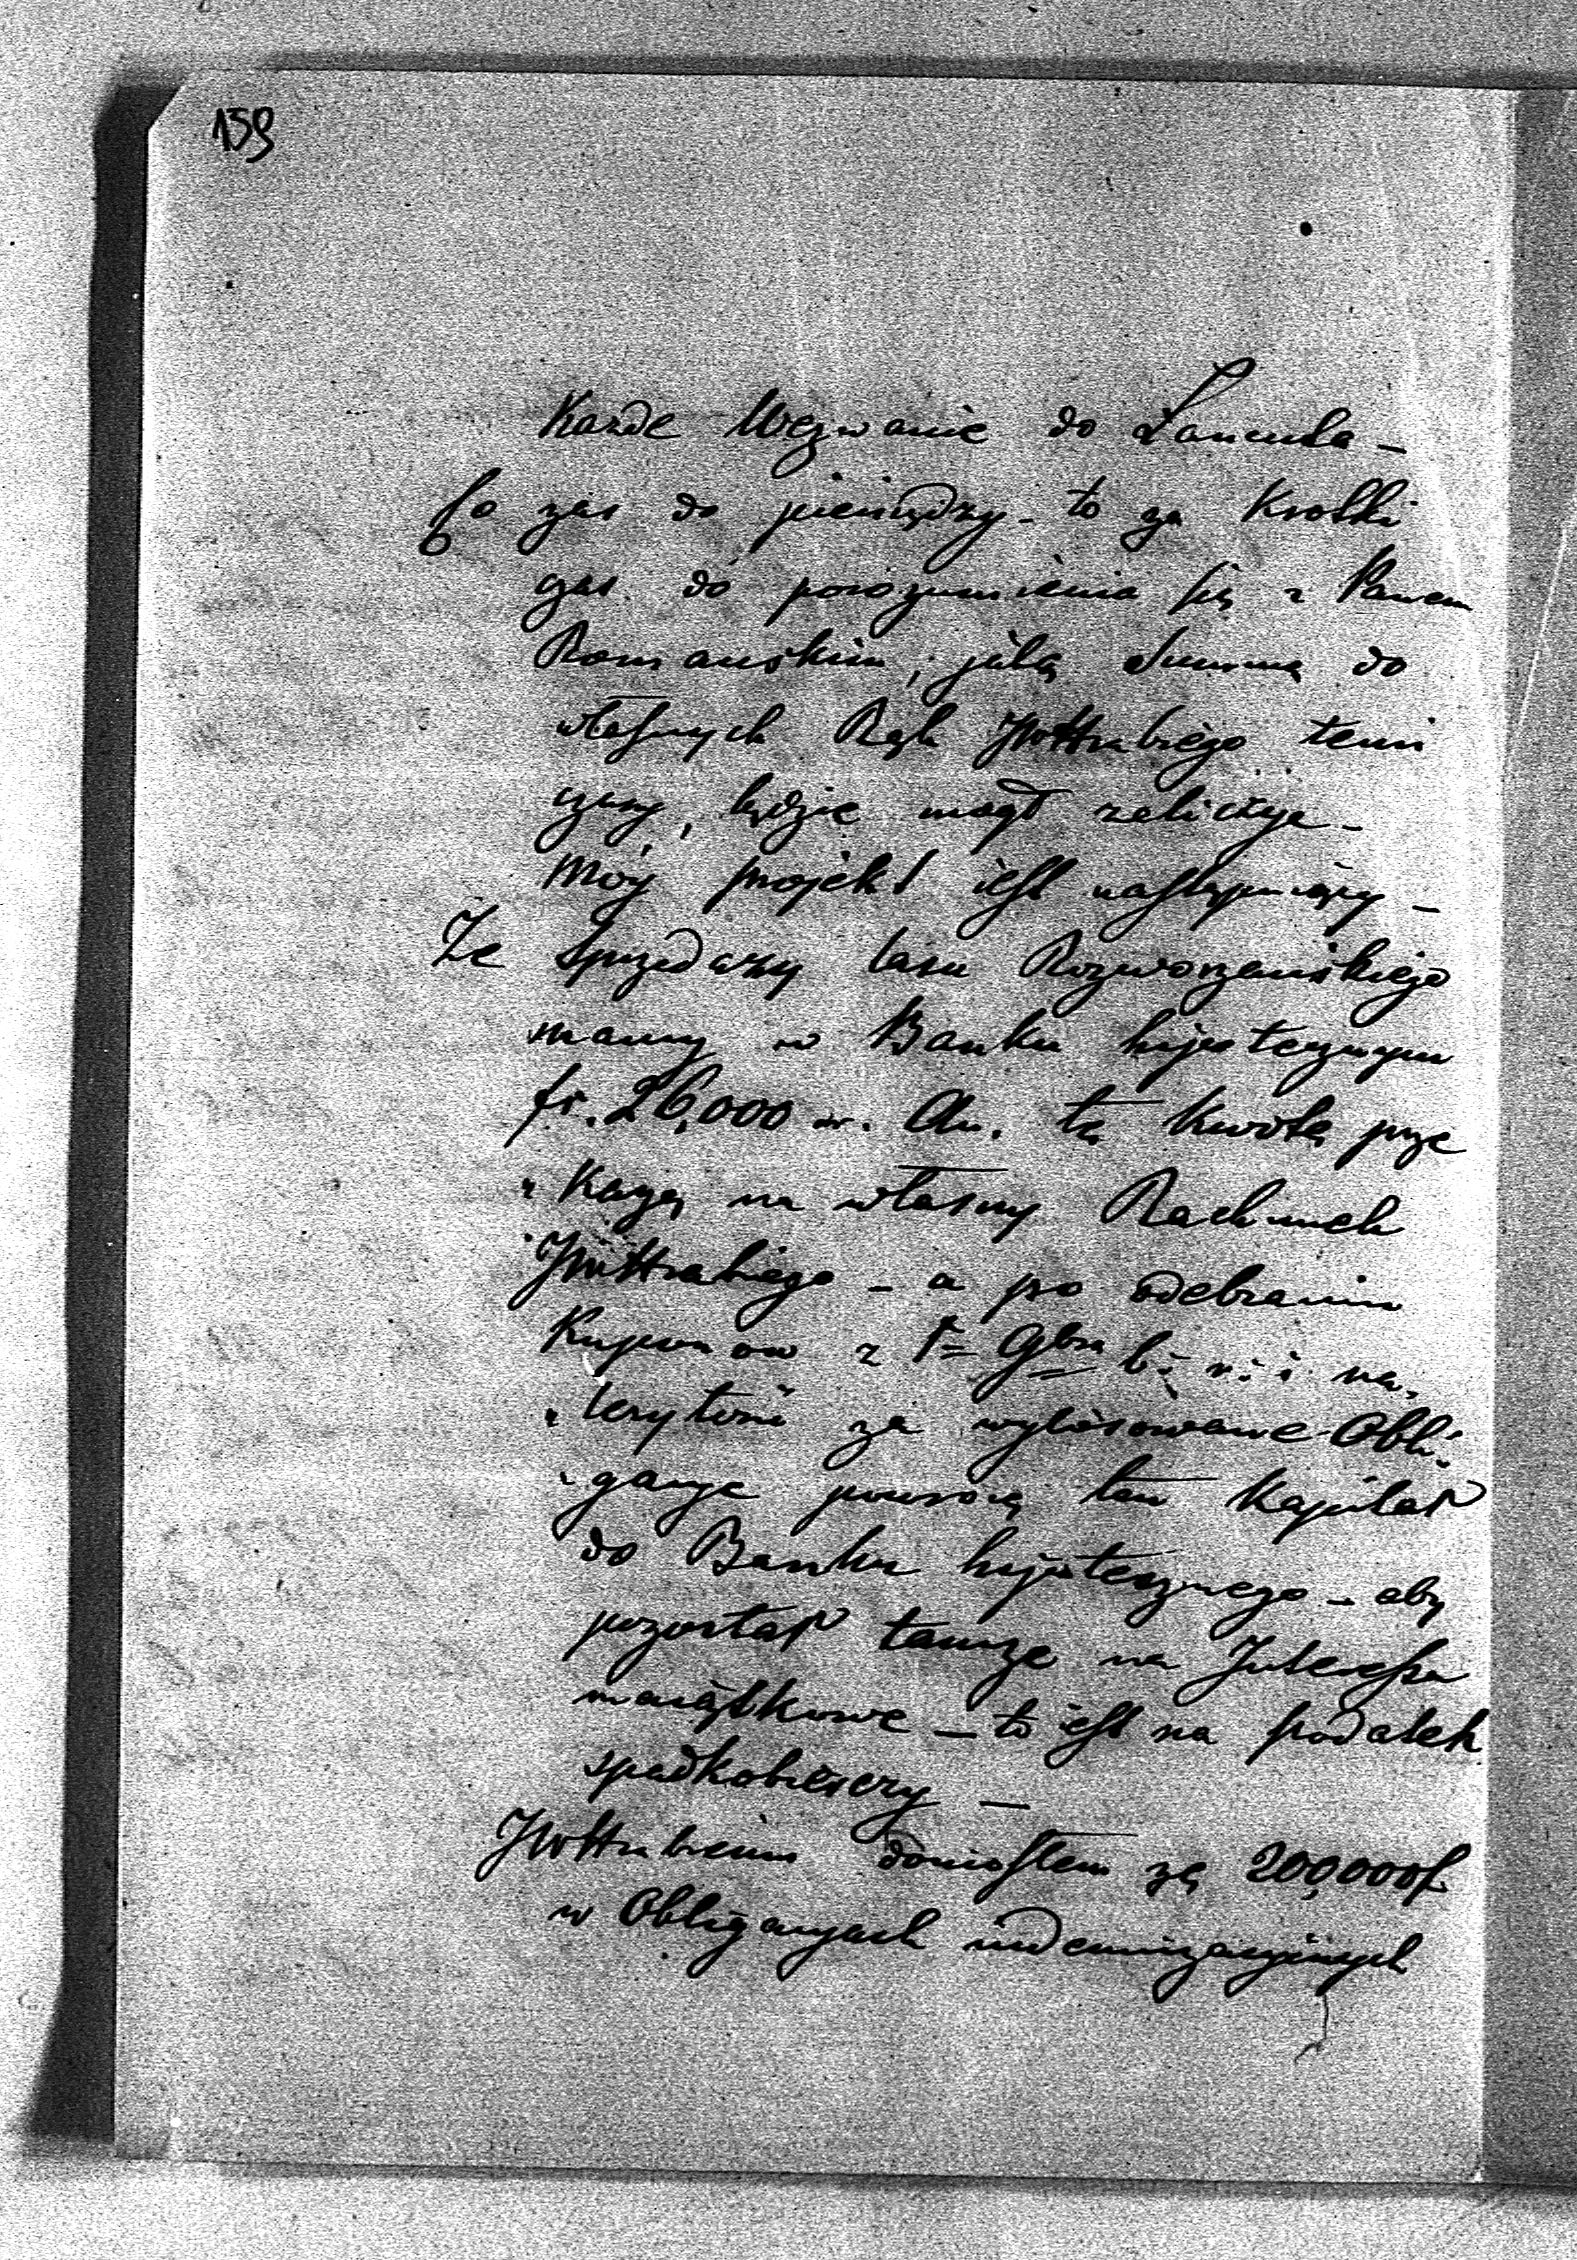 159
Kazde Wezwanie do Łancuta –
Co zas do pieniędzy – to za krotki
czas do porozumienia się z Panem
Romanskim, jaką Summę do
własnych Rąk JWHrabiego temi
czasy, będzie mogł
Moy projekt iest następuiący –
Ze Sprzedazy lasu Rozworzanskiego
mamy w Banku hipotecznym
fr. 26,000 w. Au. tę kwotę prze
„kazę na własny Rachunek
JWHrabiego – a po odebraniu
Kuponow z 1= 9bra b: r: i na„
„lezytosci za wylosowane Obli„
„gacye powrocę ten kapitał
do Banku hipotecznego – aby
pozostał tamze na Interessa
maiątkowe – to iest na podatek
spadkobierczy –
JWHrabiemu doniosłem ze 200,000 f
w Obligacyach indemnizacyjnych